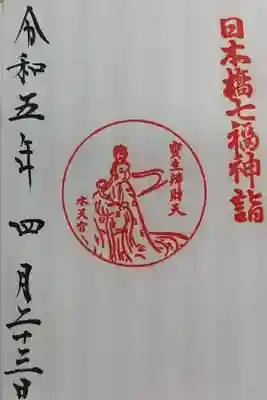 日本橋七福神詣
寶生辨財天
水天宮
令和五年四月二十三日